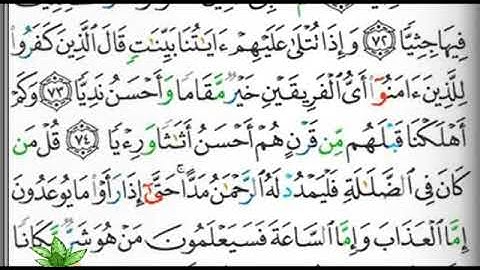 فِيهَا جِثِيًّا ٧٢ وَإِذَا تُتْلَىٰ عَلَيْهِمْ ءَايَٰتُنَا بَيِّنَٰتٍ قَالَ ٱلَّذِينَ كَفَرُوا۟
لِلَّذِينَ ءَامَنُوٓا۟ أَىُّ ٱلْفَرِيقَيْنِ خَيْرٌ مَّقَامًا وَأَحْسَنُ نَدِيًّا ٧٣ وَكَمْ
أَهْلَكْنَا قَبْلَهُم مِّن قَرْنٍ هُمْ أَحْسَنُ أَثَٰثًا وَرِءْيًا ٧٤ قُلْ مَن
كَانَ فِى ٱلضَّلَٰلَةِ فَلْيَمْدُدْ لَهُ ٱلرَّحْمَٰنُ مَدًّا ۚ حَتَّىٰٓ إِذَا رَأَوْا۟ مَا يُوعَدُونَ
إِمَّا ٱلْعَذَابَ وَإِمَّا ٱلسَّاعَةَ فَسَيَعْلَمُونَ مَنْ هُوَ شَرٌّ مَّكَانًا